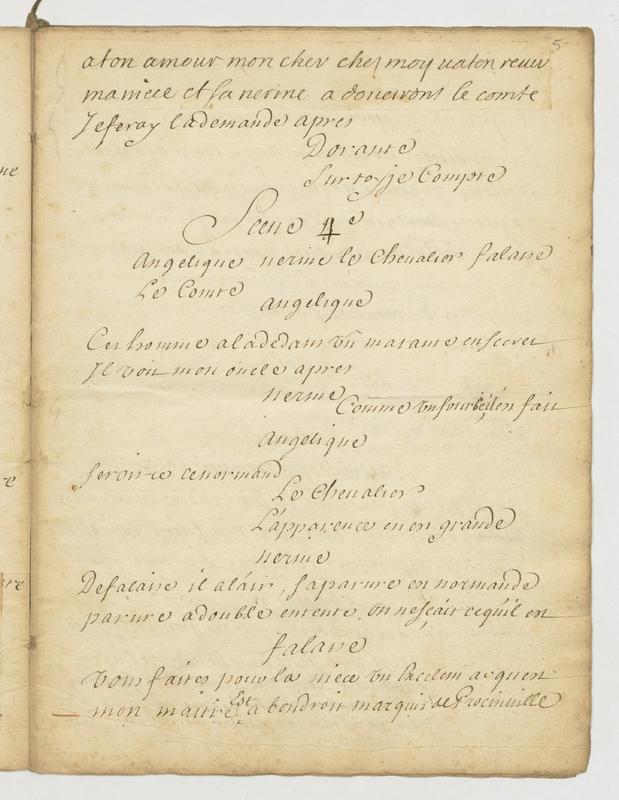 5
a ton amour mon cher chez moy vaten revir
ma niece et sa nerine a doucirons le comte
Je feray la demande apres
Dorante
sur toy je Compte
Scene 4e
Angelique nerine le Chevalier falaise
Le Comte
angelique
Cet homme a la dedans un matante en secret
Il voit mon oncle apres
nerine
Comme un fourbe il en fait
angelique
seroit-ce ce normand
Le Chevalier
L'apparence en en grande
nerine
De falaise il a l'air, sa parure en normande
parure a double entente. on ne sçait ce qu'il en
falaise
Vous faites pour la niece un Excelent acquest
mon maitre Est a bon droit marquis de Procinville